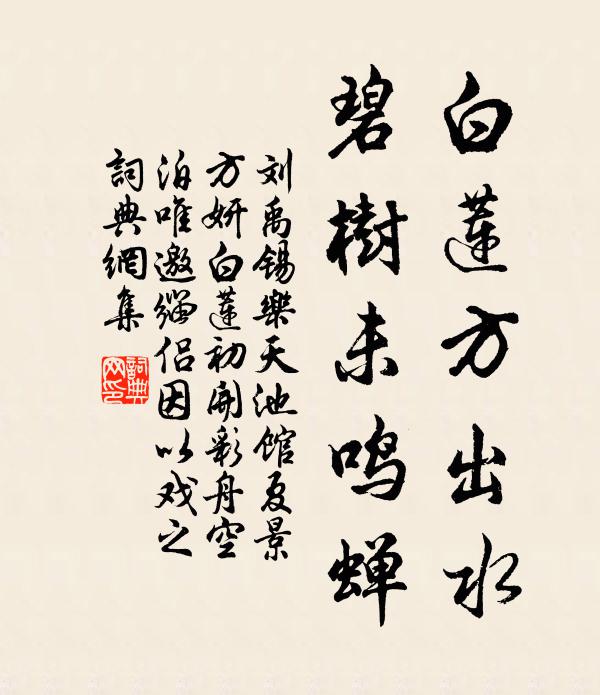 白蓮方出水
碧樹未鸣蝉
刘禹锡樂天池馆夏景
方妍白蓮初開彩舟空
泊唯邀缁侣因以戏之
詞典網集
詞典
网印